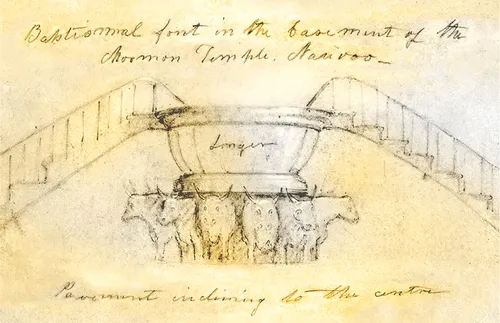 Baptismal font in the basement of the
Mormon Temple. Nauvoo_
Larger
Pavement inclining to the centre